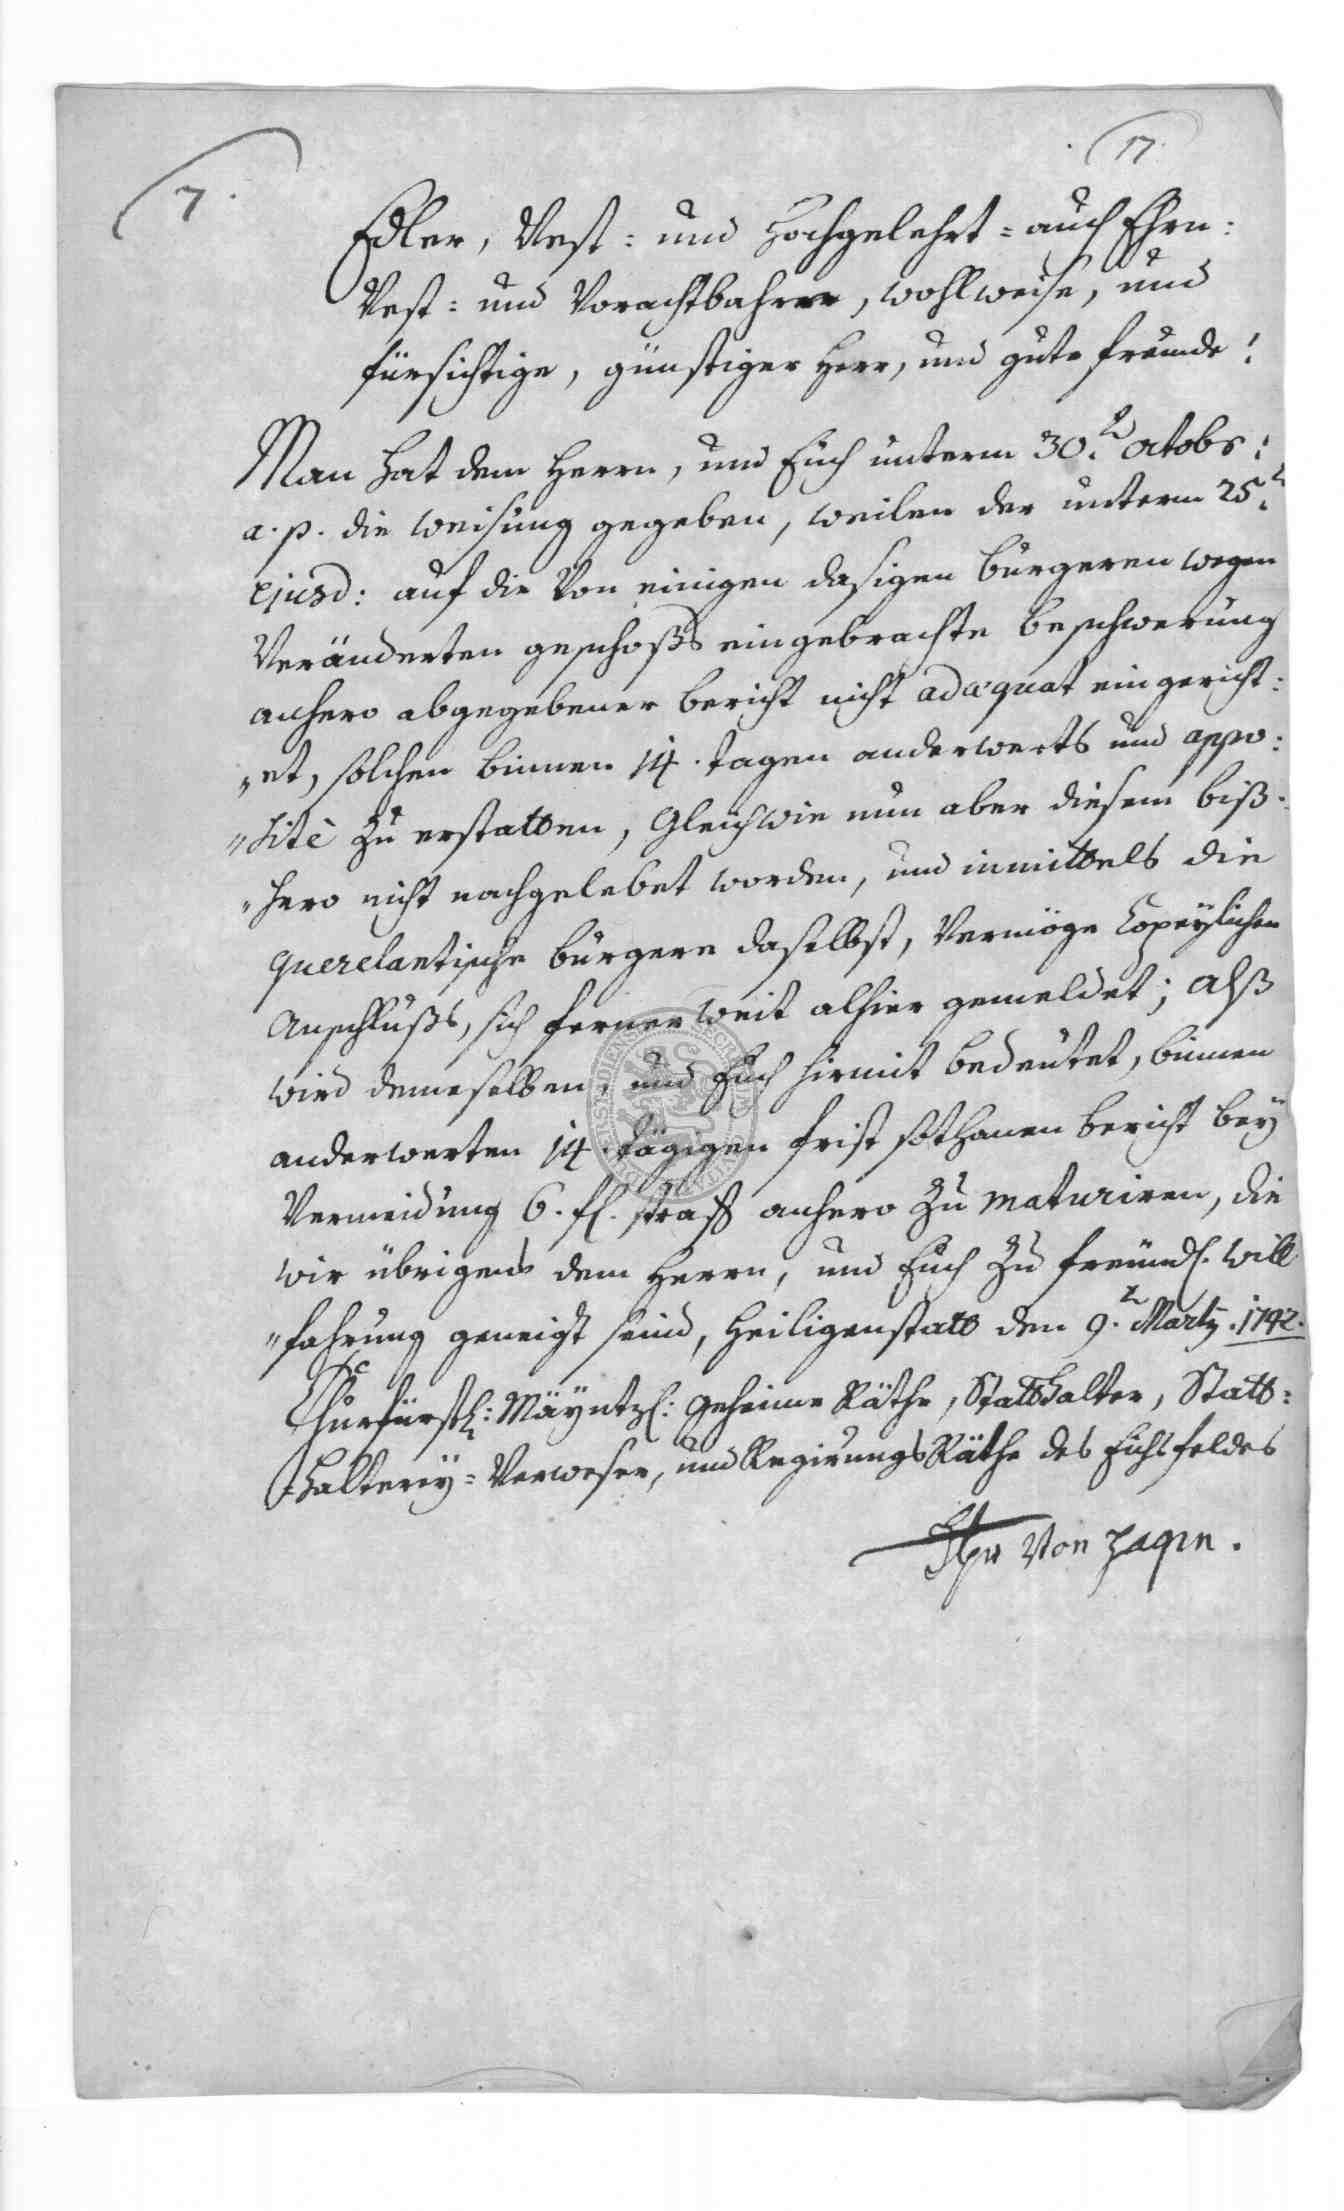 17.
7.
Edler, Vest= und Hochgelehrt= auch Ehrn=
Vest= und Vorachtbahre, wohlweise, und
fürsichtige, günstiger Herr, und gute freünde!
Man hat dem Herrn, und Euch unterm 30.t
a. p. die weisung gegeben, weilen der unterm 25.t
ejusd: auf die Von einigen dasigen bürgeren wegen
Veränderten geschoßs eingebrachte beschwerung
anhero abgegebener bericht nicht adæquat eingericht=
"et, solchen binnen 14. tagen anderwerts und appo=
"sitè zu erstatten, Gleichwie nun aber diesem biß=
"hero nicht nachgelebet worden, und inmittels die
querelantische bürgere daselbst, Vermöge Copeylichen
Anschlußs, sich fernerweit alhier gemeldet; Alß
wird demeselben, und Euch hirmit bedeütet, binnen
anderwerten 14.tägigen frist sothanen bericht bey
Vermeidung 6. fl. straff anhero zu maturiren, die
wir übrigens dem Herrn, und Euch zu freündl. will
"fahrung geneigt seind, Heiligenstatt den 9.t Martz. 1742.
Churfürstl: Mäyntzl: geheime Räthe, Statthalter, Statt=
=halterey=Verweser, und RegirungsRäthe des Eichsfeldes
Von Hagen.